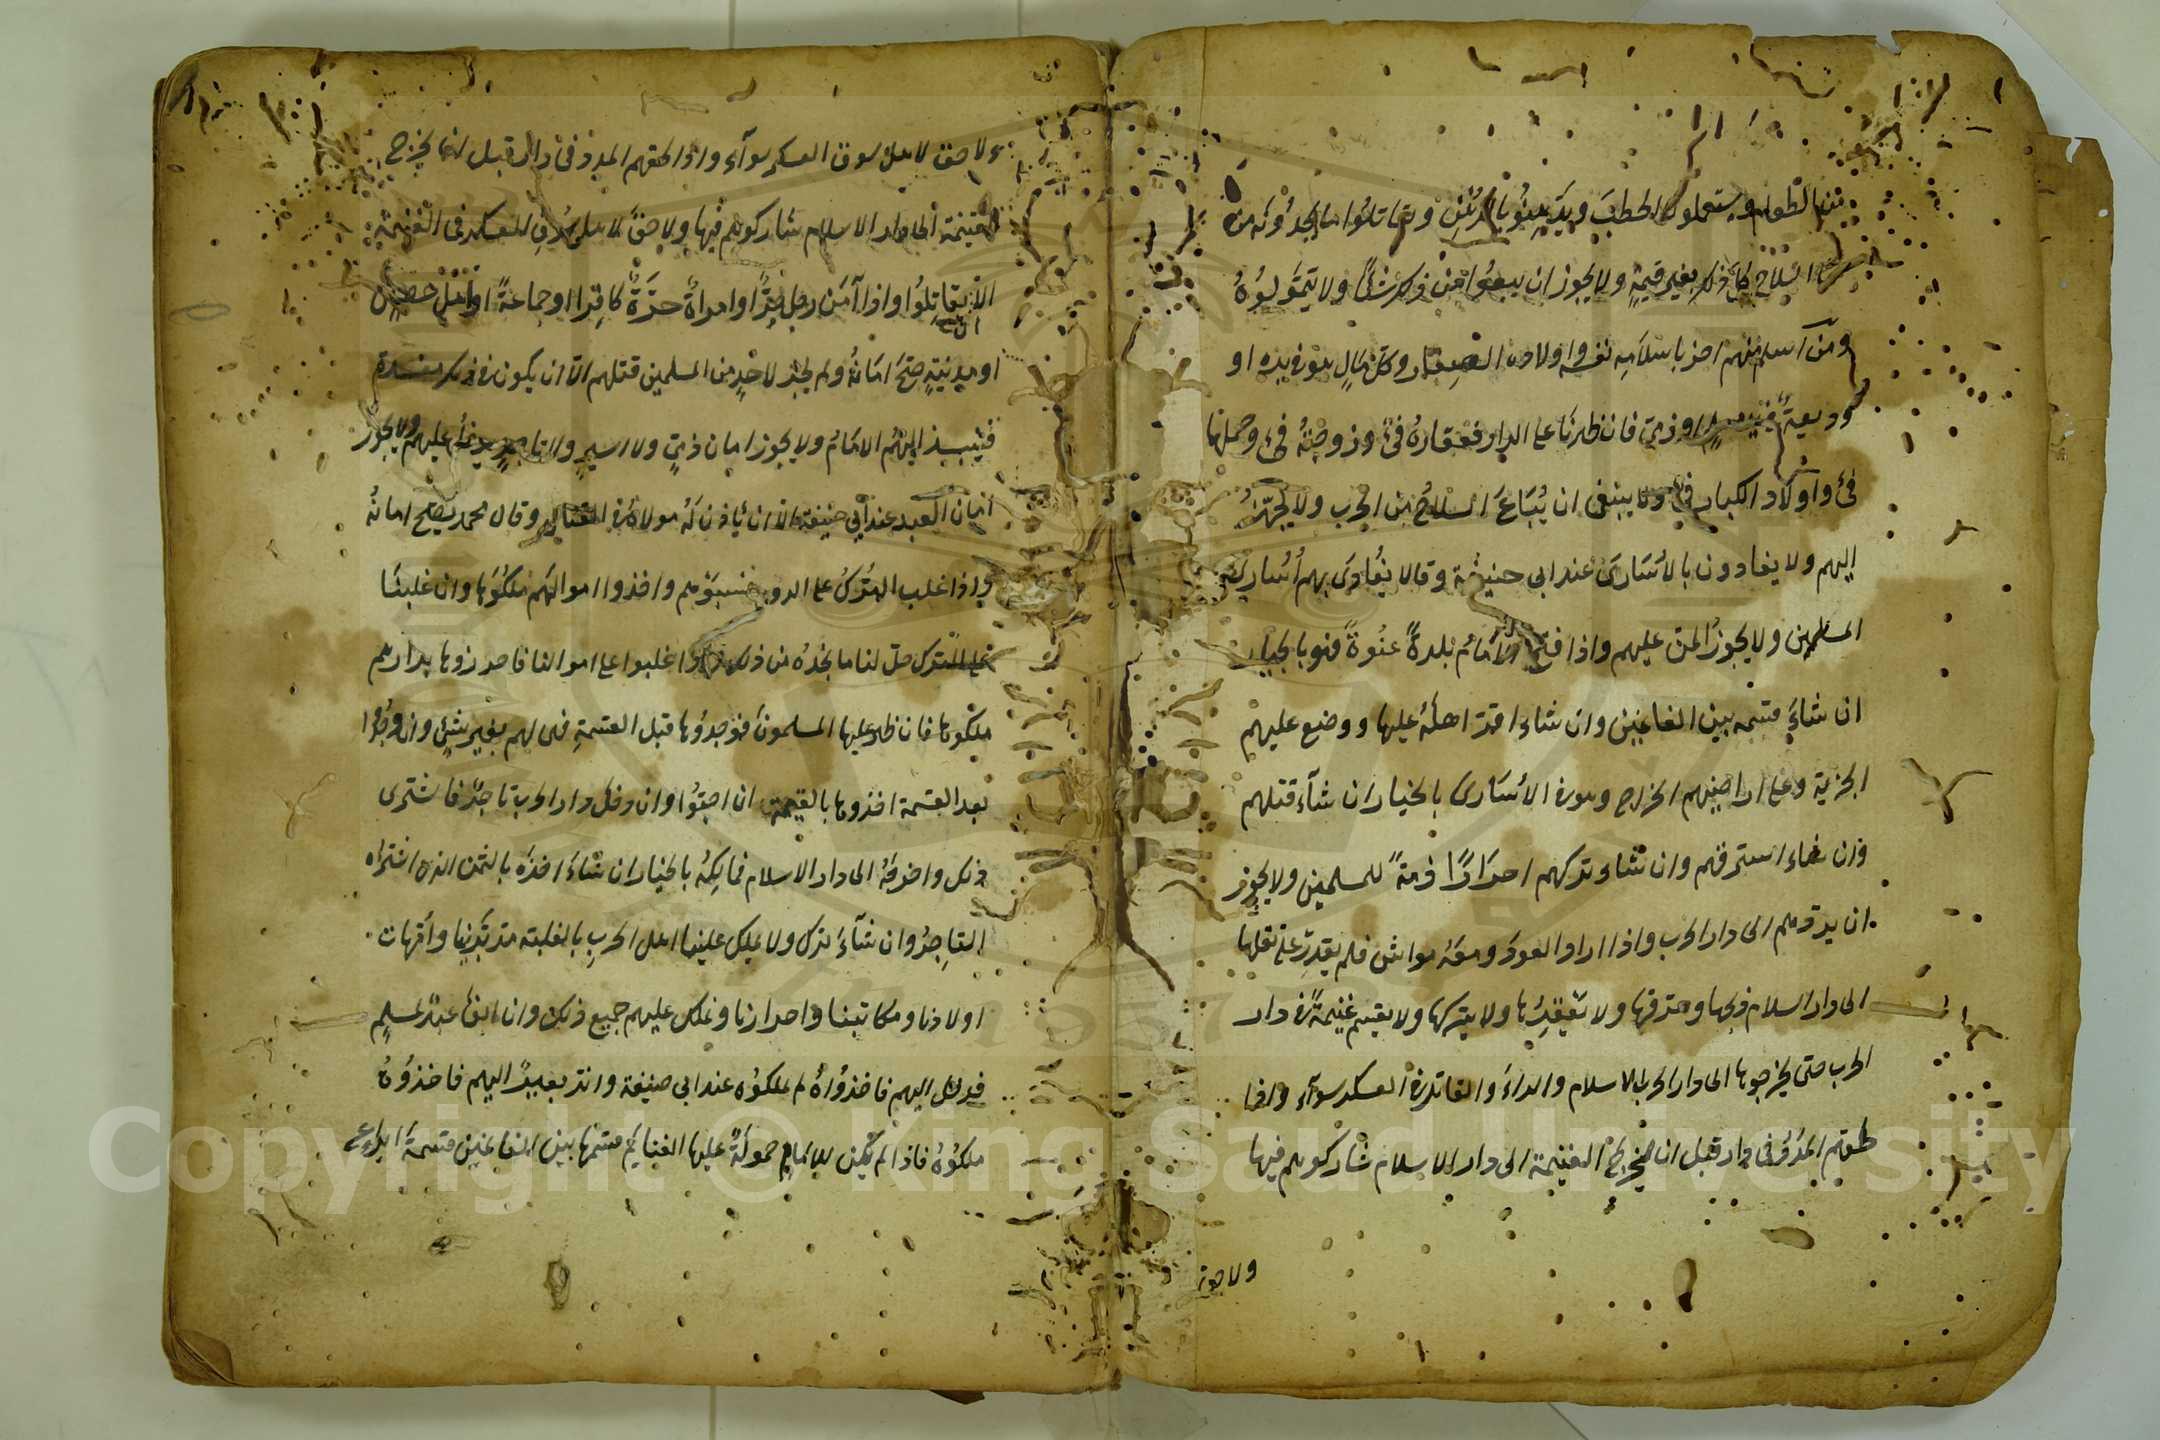 الطعام ويستعملوا الحطب ويدهنوا بالدهن ويقاتلوا بما يجدونه من
السلاح كل ذلك بغير قيمةٍ ولا يجوز ان يبيعوا من ذلك شيئًا ولا يتمولوه
ومن اسلم منهم احرز باسلامه نفسه واولاده الصغار وكل مالٍ هو في يده او
وديعةً في يد مسلم او ذمي فان ظهرنا على الدار فعقاره فئ وزوجته فئ وحملها
فئ واولاد الكبار فئ ولا ينبغى ان يُباعَ السلاح من الحرب ولا يجهز
اليهم ولا يفادون بالاسارى عند ابى حنيفة وقالا يفادى بهم اسارى
المسلمين ولا يجوز المن عليهم واذا فتح الامام بلدةً عنوةً فهو بالخيار
ان شاء قسمه بين الغانمين وان شاء اقر اهله عليها ووضع عليهم
الجزية وعلى اراضيهم الخراج وهو فى الاسارى بالخيار ان شآء قتلهم
وان شاء استرقهم وان شاء تركهم احرارًا ذمةً للمسلمين ولا يجوز
ان يردهم الى دار الحرب واذا اراد العود ومعه مواش فلم يقدر على نقلها
الى دار اسلام ذبحها وحرقها ولا يعقرها ولا يتركها ولا يقسم غنيمةً فى دار
الحرب حتى يخرجوها الى دار الحرب الاسلام والرداء والمقاتل فى العسكر سوآء واذا
لحقهم المدد فى دار قبل ان يخرج الغنيمة الى دار الاسلام شاركوهم فيها
ولا حق
ولا حق لاهل سوق العسكر سوآء واذا لحقهم المدد فى دار قبل ان يخرج
الغنيمة الى دار الاسلام شاركوهم فيها ولا حق لاهل سوق العسكر فى الغنيمة
الا ان يقاتلوا واذا آمَن رجل حرًّا او امراةً حرّةً كافرا او جماعةً او اهل حصنٍ
او مدينةٍ صحّ امانه ولم يجز لاحدٍ من المسلمين قتلهم الا ان يكون فى ذلك مفسدة
فينبذ اليهم الامام ولا يجوز امان ذميٍّ ولا اسيرٍ ولا تاجرٍ يدخل عليهم ولا يجوز
امان العبد عند ابى حنيفة الا ان يأذن له مولاه فى القتال وقال محمد يصلح امانه
واذا غلب الترك على الروم فسبوهم واخذوا اموالهم ملكوها وان غلبنا
على الترك حل لنا ما نجده من ذلك واذا غلبوا على اموالنا فاحرزوها بدارهم
ملكوها فان ظهر عليها المسلمون فوجدوها قبل القسمةِ فهى لهم بغير شئٍ وان وجدوا
بعد القسمة اخذوها بالقيمة ان احبوا وان دخل دار الحرب تاجرٌ فاشترى
ذلك واخرجه الى دار الاسلام فمالكه بالخيار ان شاءَ اخذه بالثمن الذى اشتراه
التاجر وان شآءَ ترك ولا يملك علينا اهل الحربِ بالغلبة مدبّرينا وامهات
اولادنا ومكاتبنا واحرارنا ونملك عليهم جميع ذلك وان ابق عبدٌ لمسلمٍ
فدخل اليهم فاخذوه لم يملكوه عند ابى حنيفة وان ند بعيرٌ اليهم فاخذوه
ملكوه فاذا لم يكن للامام حمولةً عليها الغنايم قسمها بين الغانمين قسمةَ ايداع
Copyright © King Saud University